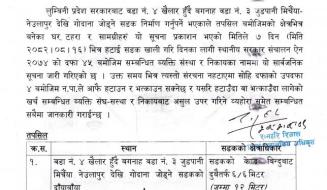 लुम्विनी प्रदेश सरकारबाट वडा नं. ४ खैलार हुँदै बगनाह वडा नं. ३ जुडपानी मिर्चैया-
नेउलापुर देखि गोदाना जोड्ने सडक निर्माण गर्नुपर्ने भएकाले तपसिल बमोजिमको क्षेत्रभित्र
बनेका घर, टहरा र सामग्रीहरु यो सूचना प्रकाशन भएको मितिले ७ दिन (मिति
२०८२।०८।१६) भित्र हटाई सडक खाली गरि दिनका लागी स्थानीय सरकार संचालन ऐन
२०७४ को दफा ४५ बमोजिम सम्बन्धित व्यक्ति संस्था र निकायका नाममा यो सार्वजनिक
सूचना जारी गरिएको छ। उक्त समय भित्र त्यस्तो संरचना नहटाएमा सोहि दफाको उपदफा
४ बमोजिम न.पा.ले आफै हटाउन र भत्काउन सक्नेछ र यसरि हटाउँदा वा भत्काउँदा लागेको
खर्च सम्बन्धित व्यक्ति संघ-संस्था र निकायबाट असुल उपर गरिने व्यहोरा समेत सम्बन्धित
सबैमा जानकारी गराईन्छ ।
तपसिल
क्र.सं. स्थान सडकको क्षेत्राधिकार
१. वडा नं. ४ खैलार हुँदै बगनाह वडा नं. ३ जुडपानी सडकको केन्द्र बिन्दुबाट
मिर्चैया-नेउलापुर देखि गोदाना जोड्ने सडकको दुबैतर्फ ६/६ मिटर
दायाँबायाँ (जम्मा १२ मिटर)